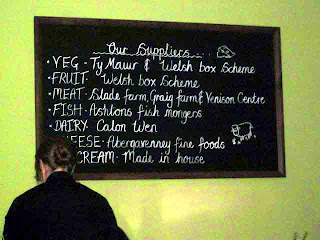 Our Suppliers....
• VEG - Ty Mawr & Welsh box Scheme
• FRUIT - Welsh box Scheme
• MEAT - Slade farm, Graig farm & Venison Centre
• FISH - Ashtons fish mongers
• DAIRY - Calon Wen
EESE - Abergavenny fine foods
CREAM - Made in house